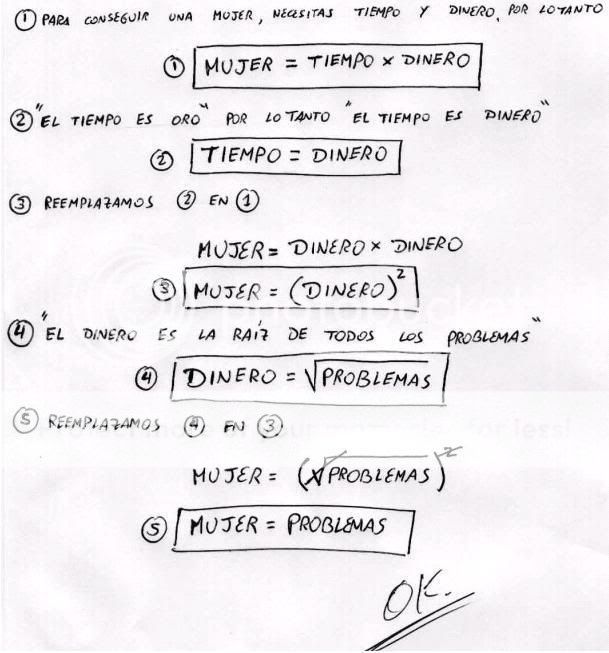 ① PARA CONSEGUIR UNA MUJER, NECESITAS TIEMPO Y DINERO, POR LO TANTO
① MUJER = TIEMPO x DINERO
② "EL TIEMPO ES ORO" POR LO TANTO "EL TIEMPO ES DINERO"
② TIEMPO = DINERO
③ REEMPLAZAMOS ② EN ①
MUJER = DINERO x DINERO
③ MUJER = (DINERO)²
④ "EL DINERO ES LA RAÍZ DE TODOS LOS PROBLEMAS"
④ DINERO = √PROBLEMAS
⑤ REEMPLAZAMOS ④ EN ③
MUJER = (√PROBLEMAS)²
⑤ MUJER = PROBLEMAS
OK.